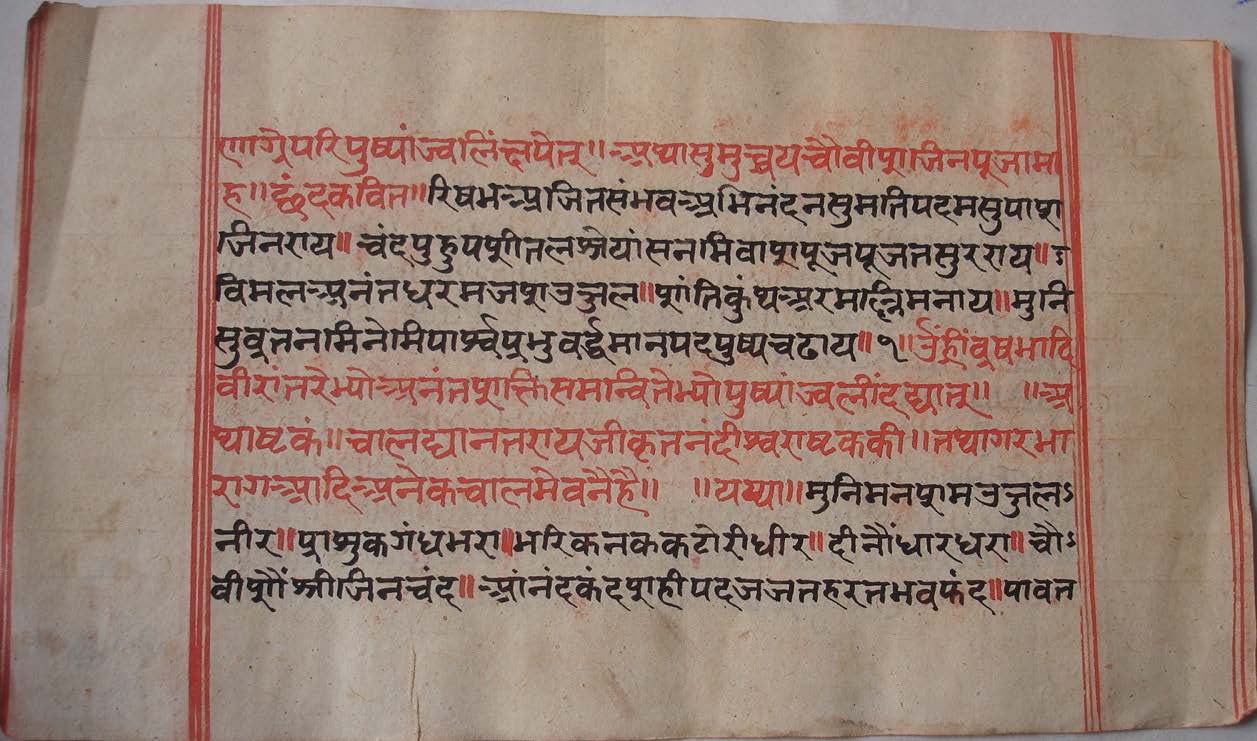 णाग्रेपरिपुष्पांज्वलिंक्षपेत्॥अथासुमुच्चयचौवीशजिनपूजामा
ह॥छंदकवित॥रिषभअजितसंभवअभिनंदनसुमतिपदमसुपाश
जिनराय॥चंदपुहुपशीतलश्रेयांसनमिवाशपूजपूजतसुरराय॥ऽ
विमलअनंतधरमजशउज्जल॥शांतिकुंथअरमल्लिमनाय॥मुनि
सुव्रतनमिनेमिपार्श्वप्रभुवर्द्धमानपदपुष्पचढाय॥१॥उँह्रींवृषभादि
वीरांतरेभ्योअनंतशक्तिसमन्वितेभ्योपुष्पांज्वलींदद्यात्॥ ॥अ
थाष्टकं॥चालद्यानतरायजीकृतनंदीश्वराष्टककी॥तथागरभा
रागआदिअनेकचालमेवनैहै॥ ॥यय्या॥मुनिमनशमउज्जलऽ
नीर॥प्राशुकगंधभरा॥भरिकनककटोरीधीर॥दीनौंधारधरा॥चौऽ
वीशौंश्रीजिनचंद॥आंनंदकंदशहीपदजजतहरतभवफंद॥पावत